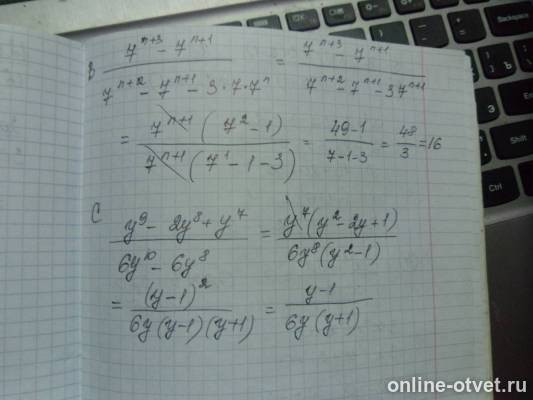 В (7^(n+3) - 7^(n+1)) / (7^(n+2) - 7^(n+1) - 3·7·7^n) = (7^(n+3) - 7^(n+1)) / (7^(n+2) - 7^(n+1) - 3 7^(n+1))
= (7^(n+1) (7^2 - 1)) / (7^(n+1) (7^1 - 1 - 3)) = (49-1) / (7-1-3) = 48/3 = 16
С
(y^9 - 2y^8 + y^7) / (6y^10 - 6y^8) = (y^7 (y^2 - 2y + 1)) / (6y^8 (y^2 - 1))
= (y-1)^2 / (6y(y-1)(y+1)) = (y-1) / (6y(y+1))
online-otvet.ru